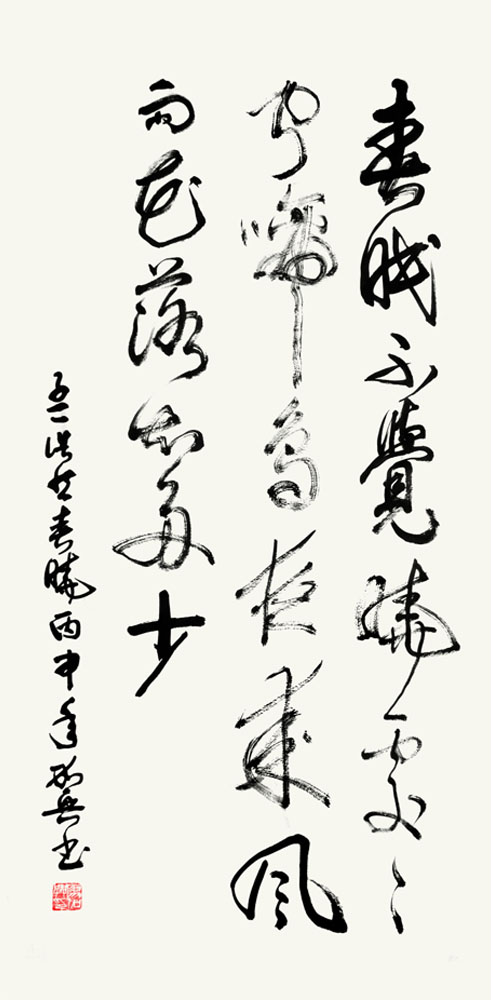 春眠不覺曉處々
聞啼鳥夜來風
雨花落知多少
孟浩然春曉丙申年書